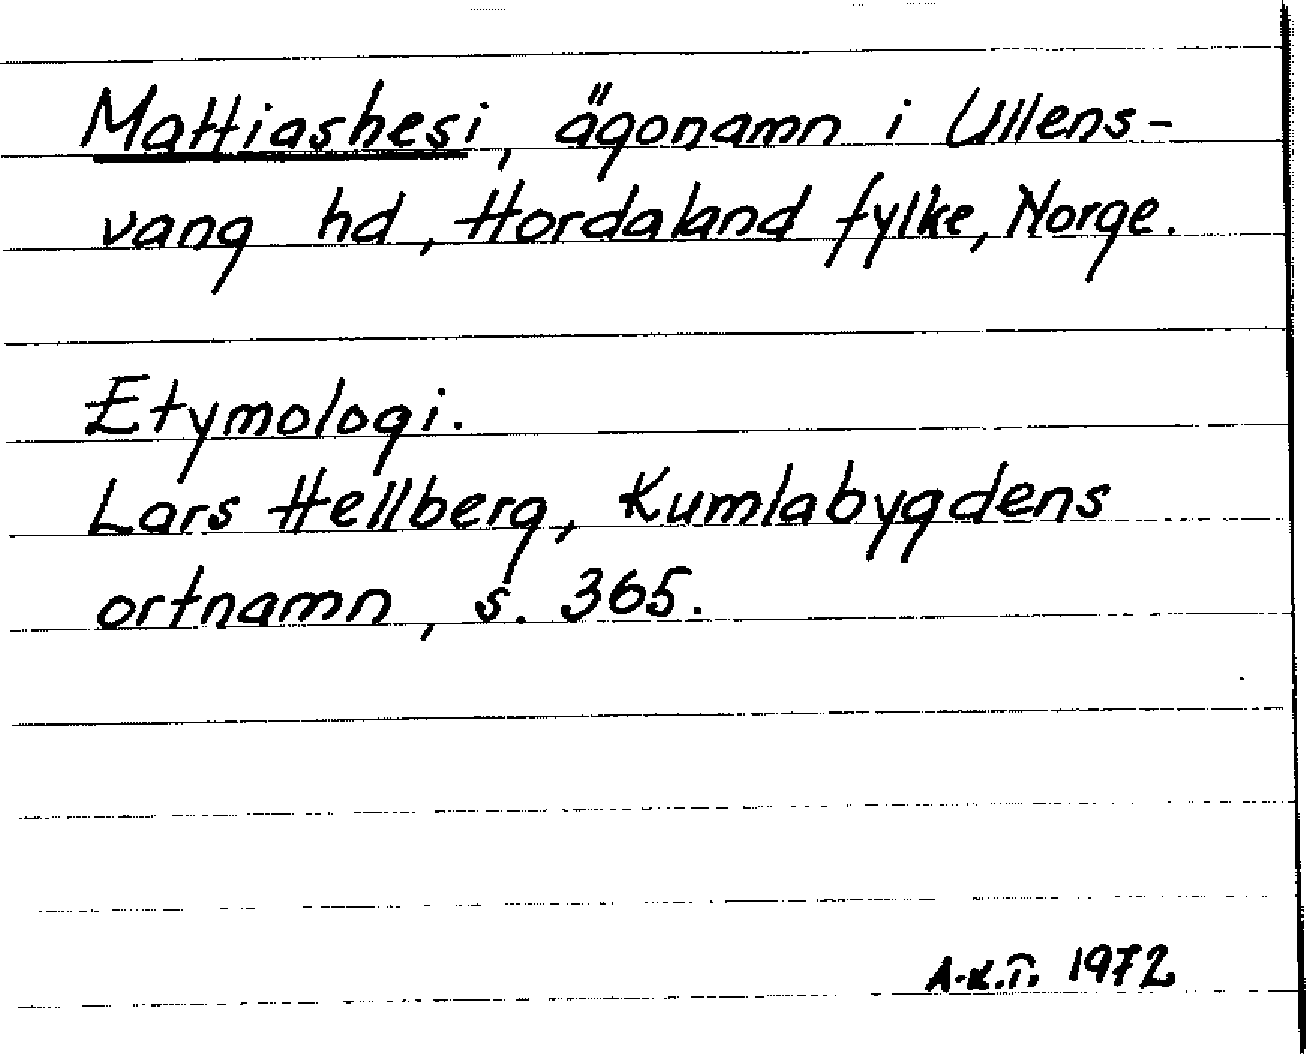 Mattiashesi, ägonamn i Ullens-
vang hd, Hordaland fylke, Norge.
Etymologi.
Lars Hellberg, Kumlabygdens
ortnamn, s. 365.
A-K.T. 1972